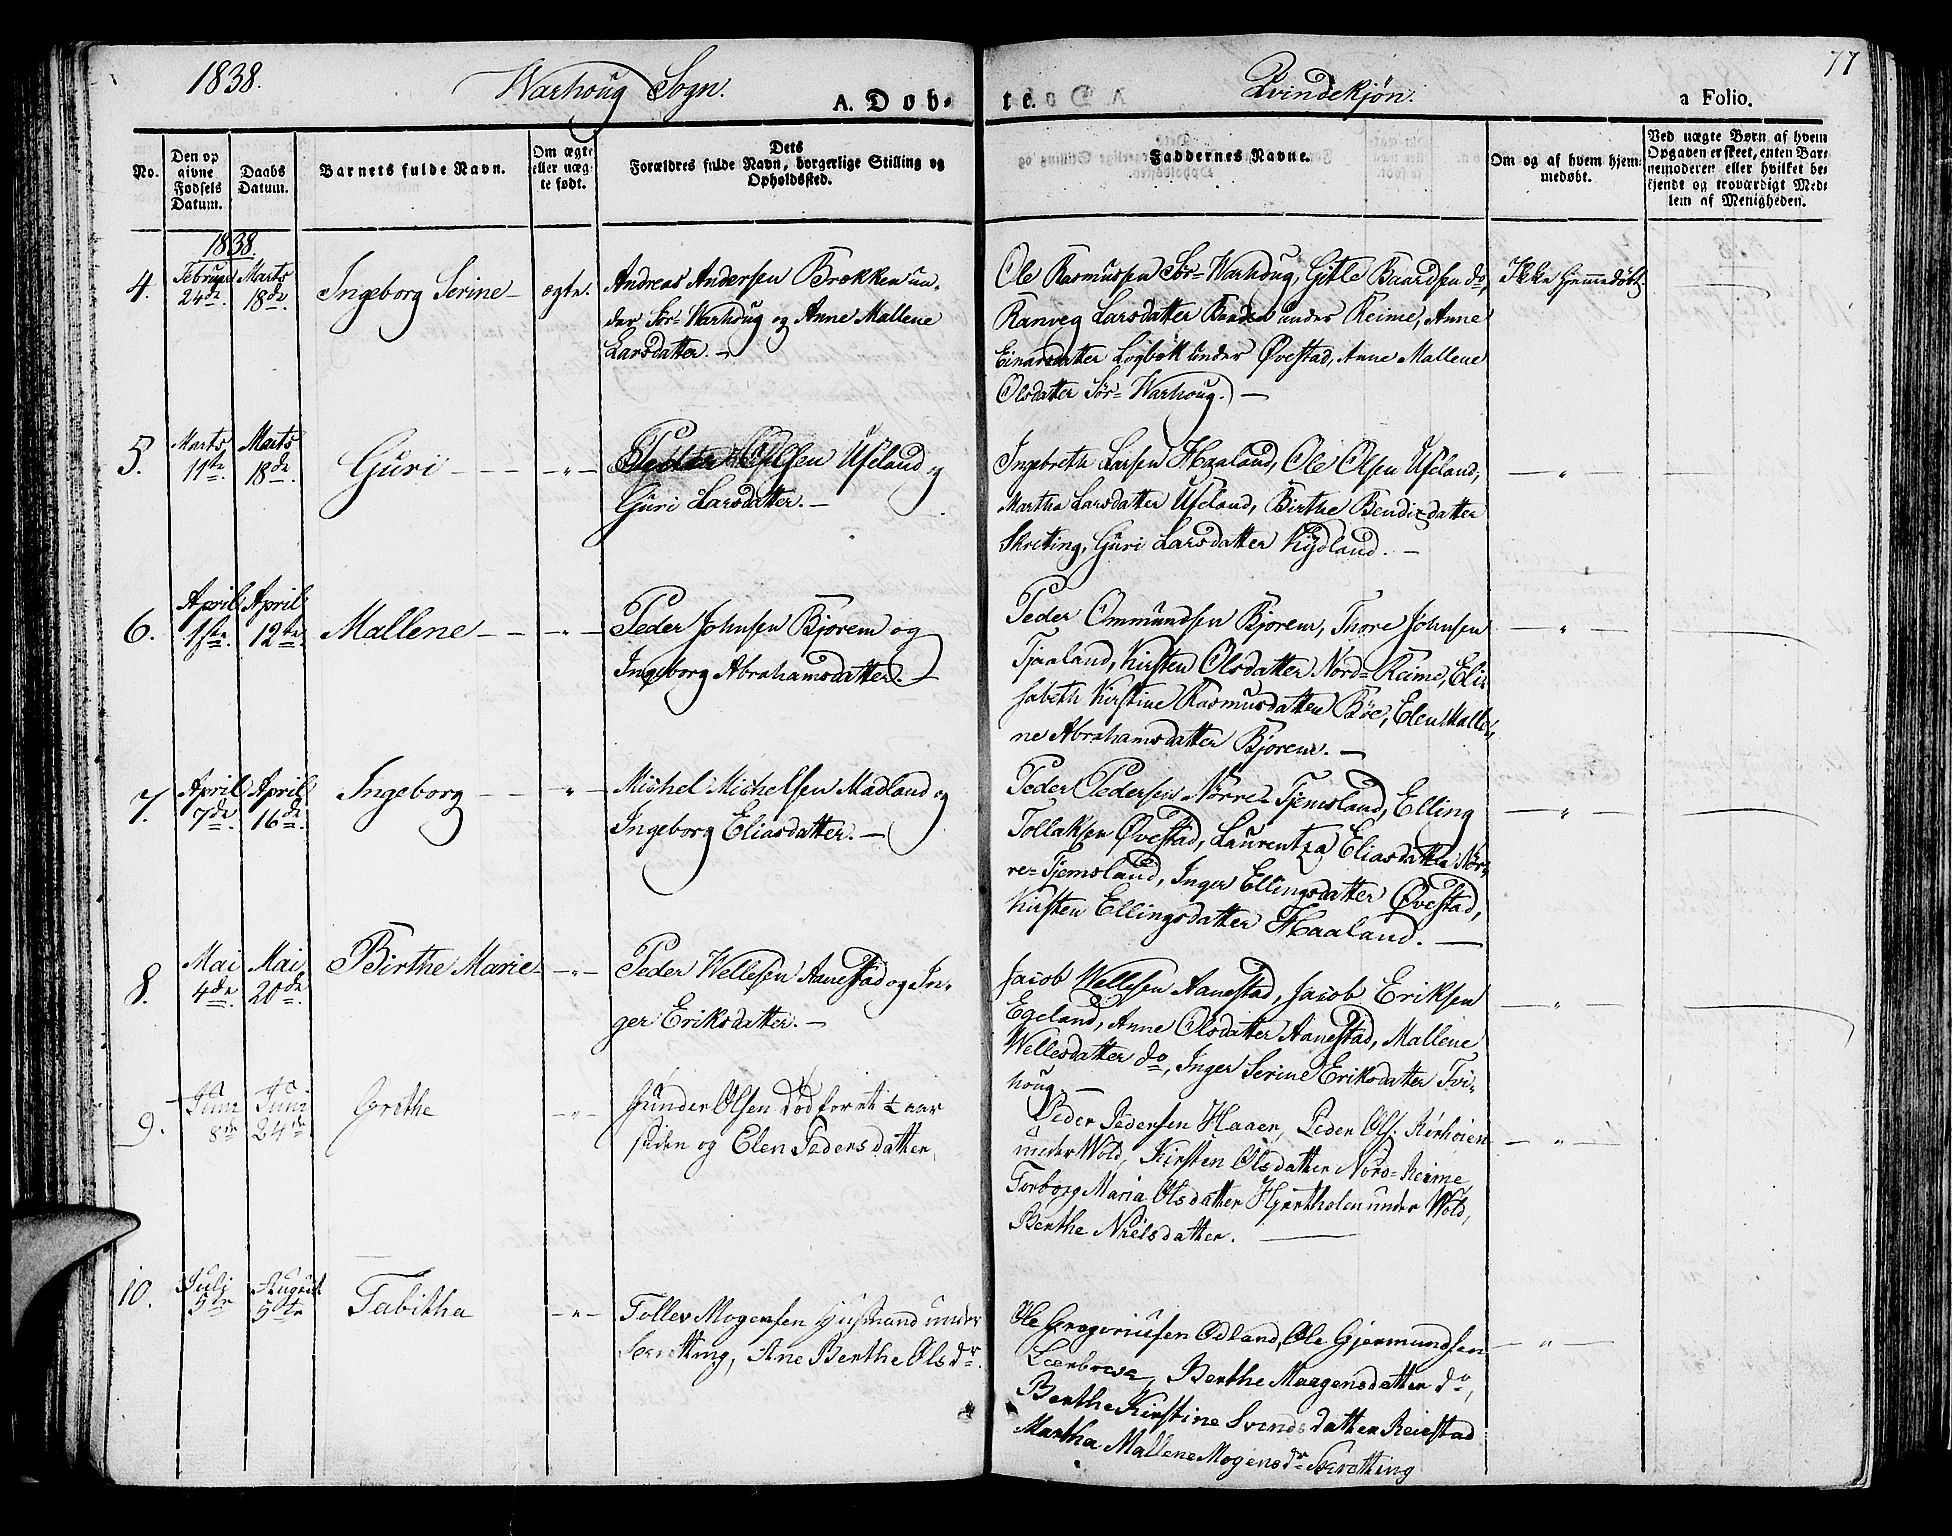 1838. Warhoug Sogn. A. Døb- te. Qvindekjøn. a Folio. 77
No. Den op givne Fødsels Datum. Daabs Datum. Barnets fulde Navn. Om ægte eller uægte født. Dets Forældres fulde Navn, borgerlige Stilling og Opholdssted. Faddernes Navne. Om og af hvem hjemmedøbt. Ved uægte Børn af hvem Opgaven er skeet, enten Barnemoderen eller hvilket bekjendt og troværdigt Medlem af Menigheden.
1838.
4. Februar 24de. Marts 18de. Ingeborg Serine – ægte. Andreas Andersen Brækken un-
der Sør-Warhoug og Anne Mallene
Larsdatter. –
Ole Rasmussen Sør-Warhoug, Gitle Baardsen do,
Ranveg Larsdatter under Reime, Anne
Einarsdatter Logbøk under Øvestad, Anne Mallene
Olsdatter Sør-Warhoug. –
Ikke hjemmedøbt.
5. Marts 11te. Marts 18de. Guri – – – „ – Olsen Ueland og
Guri Larsdatter. –
Ingebreth Larsen Haaland, Ole Olsen Ueland,
Martha Larsdatter Ueland, Birthe Bendixdatter
Skreting, Guri Larsdatter Kydland. –
– „ –
6. April 1ste. April 12te. Mallene – – – „ – Peder Johnsen Bjorem og
Ingeborg Abrahamsdatter. –
Peder Ommundsen Bjorem, Thore Johnsen
Tjaaland, Kirsten Olsdatter Nord-Reime, Eli-
sabeth Kirstine Rasmusdatter Bøe, Elen Malle-
ne Abrahamsdatter Bjorem. –
– „ –
7. April 7de. April 16de. Ingeborg – – – „ – Michel Michelsen Madland og
Ingeborg Eliasdatter. –
Peder Pedersen Nørre-Tjemsland, Elling
Tollaksen Øvestad, Laurentza Eliasdatter Nør-
re-Tjemsland, Inger Ellingsdatter Øvestad,
Kirsten Ellingsdatter Haaland. –
– „ –
8. Mai 4de. Mai 20de. Birthe Marie – – „ – Peder Wellesen Aanestad og In-
ger Eriksdatter. –
Jacob Wellesen Aanestad, Jacob Eriksen
Egeland, Anne Olsdatter Aanestad, Mallene
Wellesdatter do, Inger Serine Eriksdatter Tvi-
houg. –
– „ –
9. Juni 8de Juni 24de Grethe – „ – Gunder Olsen død for et ½ aar
siden og Elen Pedersdatter,
Peder Pedersen Haaer, Peder Ols:
under Wold, Kirsten Olsdatter Nord-Reime
Torborg Maria Olsdatter under Wold,
Berthe Nielsdatter. –
– „ –
10. Juli 5te August 5te Tabitha – „ – Tollev Mogensen Husmand under
Skretting, Ane Berthe Olsdr.
Ole Gregoriusen Ødland, Ole Gjermundsen
Berthe Maagensdatter do,
Berthe Kirstine Svendsdatter Reiestad
Martha Mallene Mogensdr Skretting
– „ –